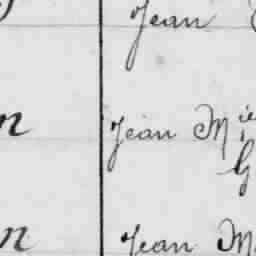 Jean
n Jean Mie
G
n Jean M